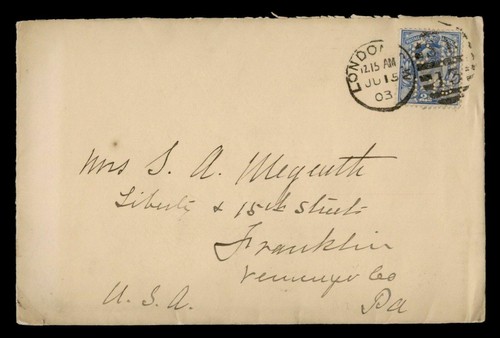 LONDON. W
12.15 AM
JU 15
03
Mrs S. A. Megeath
Liberty & 15th Streets
Franklin
Venango Co
U.S.A.
Pa